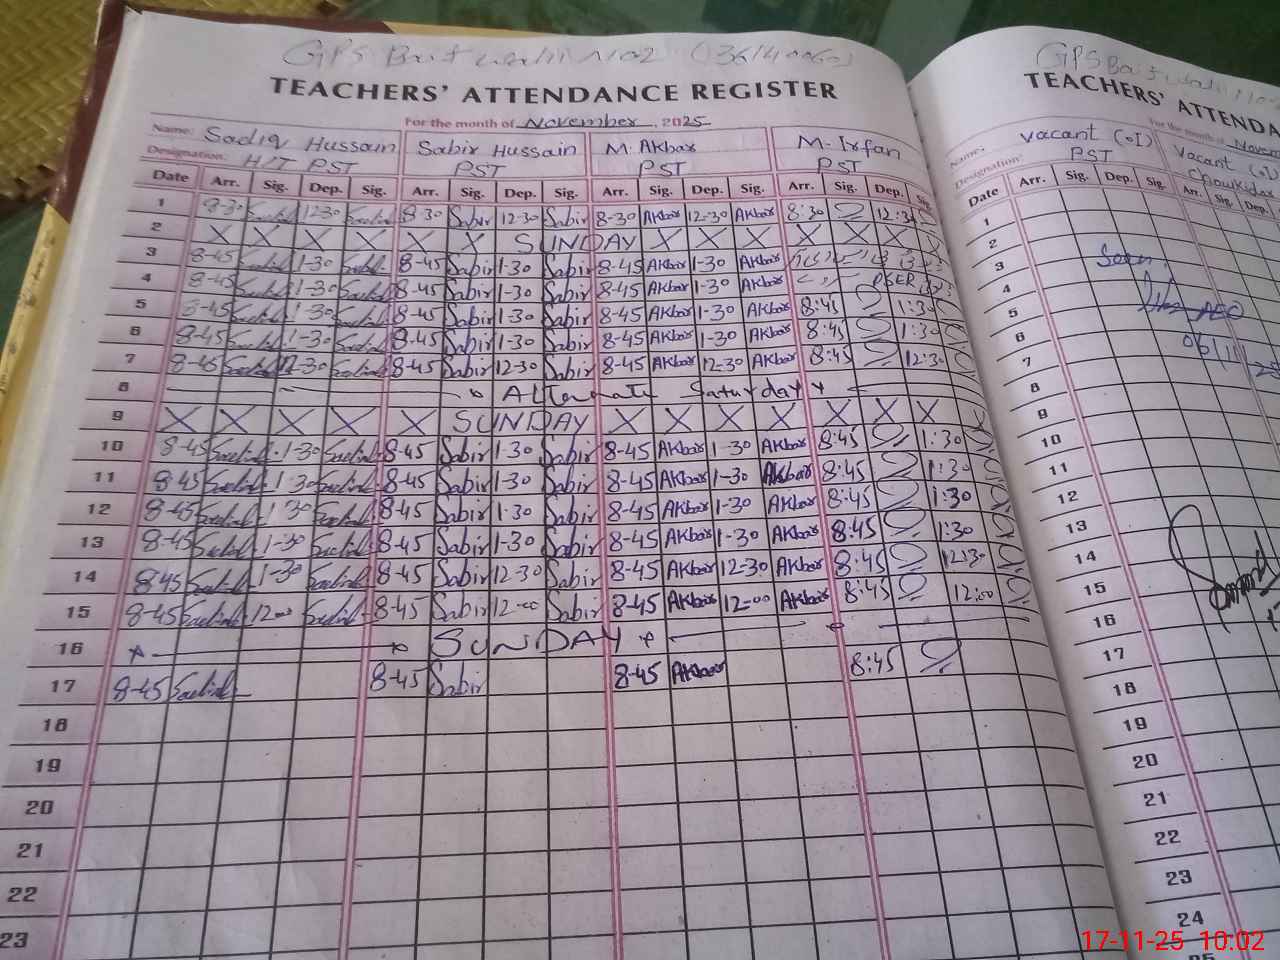 GPS Bait wali No2 (36140060)
TEACHERS' ATTENDANCE REGISTER
For the month of November, 2025
Name: Sadiq Hussain Sabir Hussain M. Akbar M. Irfan
Designation: H/T PST PST PST PST
Date Arr. Sig. Dep. Sig. Arr. Sig. Dep. Sig. Arr. Sig. Dep. Sig. Arr. Sig. Dep. Sig.
1 8-30 12-30 8-30 Sabir 12-30 Sabir 8-30 Akbar 12-30 Akbar 8:30 12:30
2 X X X X X X SUNDAY X X X X X X X
3 8-45 1-30 8-45 Sabir 1-30 Sabir 8-45 Akbar 1-30 Akbar
4 8-45 1-30 8-45 Sabir 1-30 Sabir 8-45 Akbar 1-30 Akbar PSER
5 8-45 1-30 8-45 Sabir 1-30 Sabir 8-45 Akbar 1-30 Akbar 8:45 1:30
6 8-45 1-30 8-45 Sabir 1-30 Sabir 8-45 Akbar 1-30 Akbar 8:45 1:30
7 8-45 12-30 8-45 Sabir 12-30 Sabir 8-45 Akbar 12-30 Akbar 8:45 12:30
8 Alternate Saturday
9 X X X X X SUNDAY X X X X X X X
10 8-45 1-30 8-45 Sabir 1-30 Sabir 8-45 Akbar 1-30 Akbar 8:45 1:30
11 8-45 1-30 8-45 Sabir 1-30 Sabir 8-45 Akbar 1-30 Akbar 8:45 1:30
12 8-45 1-30 8-45 Sabir 1-30 Sabir 8-45 Akbar 1-30 Akbar 8:45 1:30
13 8-45 1-30 8-45 Sabir 1-30 Sabir 8-45 Akbar 1-30 Akbar 8:45 1:30
14 8-45 1-30 8-45 Sabir 12-30 Sabir 8-45 Akbar 12-30 Akbar 8:45 12:30
15 8-45 12-00 8-45 Sabir 12-00 Sabir 8-45 Akbar 12-00 Akbar 8:45 12:00
16 SUNDAY
17 8-45 8-45 Sabir 8-45 Akbar 8:45
18
19
20
21
22
23
GPS Bait wali
TEACHERS' ATTENDA
For the month of Novem
Name: Vacant (01) Vacant (01)
Designation: PST Chowkidar
Date Arr. Sig. Dep. Sig. Arr. Sig. Dep.
1
2
3 Seen
4
5 AEO
6 06/11
7
8
9
10
11
12
13
14
15
16
17
18
19
20
21
22
23
24
25
17-11-25 10:02